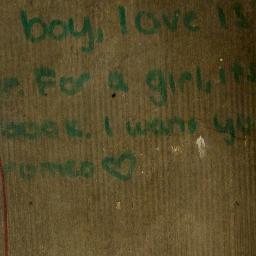 boy, love is
r. For a girl, it's
book. I want yo
romeo ♡